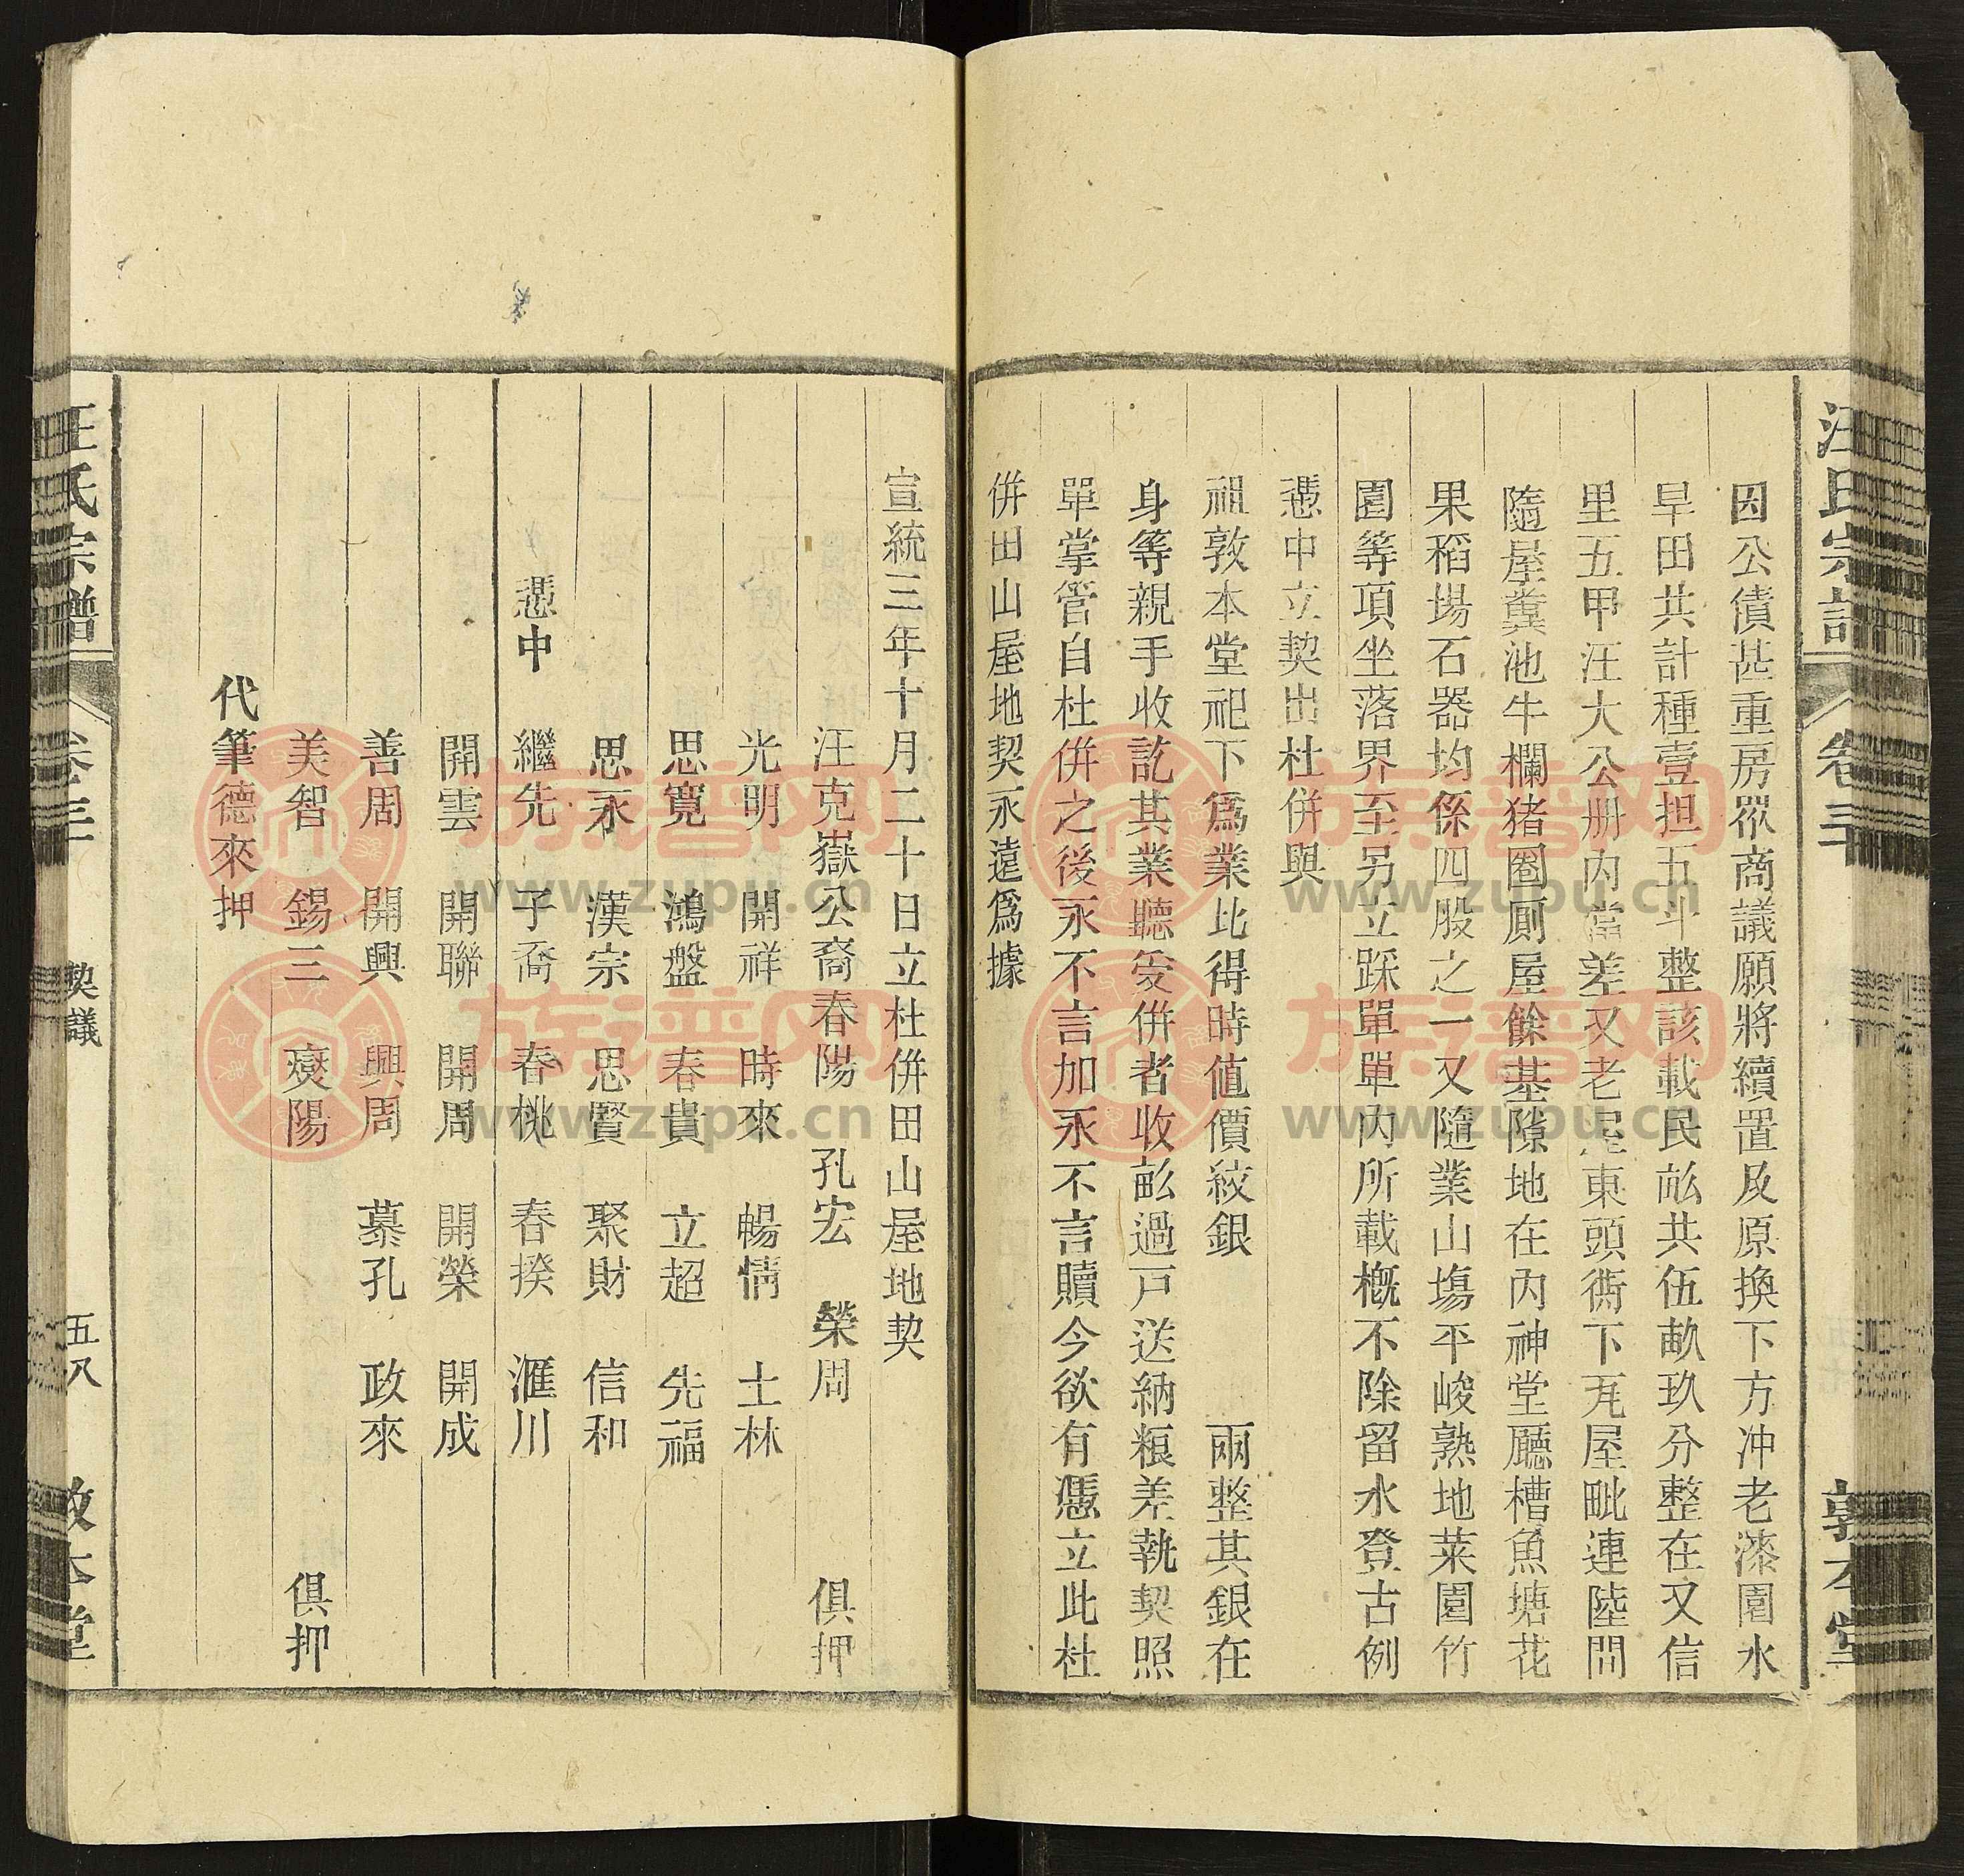 因公債甚重房眾商議願將續置及原換下方冲老漆園水
旱田共計種壹担五斗整該載民畝共伍畝玖分整在又信
里五甲汪大公册內當差又老屋東頭衖下瓦屋毗連陸間
隨屋糞池牛欄猪圈厠屋餘基隙地在內神堂廳槽魚塘花
果稻場石器均係四股之一又隨業山塲平峻熟地菜園竹
園等項坐落界至另立踩單單內所載概不除留水登古例
憑中立契出杜併與
祖敦本堂祀下爲業比得時值價紋銀　　　兩整其銀在
身等親手收訖其業聽受併者收畝過戸送納粮差執契照
單掌管自杜併之後永不言加永不言贖今欲有憑立此杜
併田山屋地契永遠爲據
宣統三年十月二十日立杜併田山屋地契
汪克嶽公裔春陽　孔宏　榮周　俱押
光明　開祥　時來　暢情　士林
思寬　鴻盤　春貴　立超　先福
思永　漢宗　思賢　聚財　信和
憑中　繼先　子喬　春桃　春揆　滙川
開雲　開聯　開周　開榮　開成
善周　開興　興周　慕孔　政來
美智　錫三　燮陽　俱押
代筆德來押
汪氏宗譜　卷三　契議　五八　敦本堂